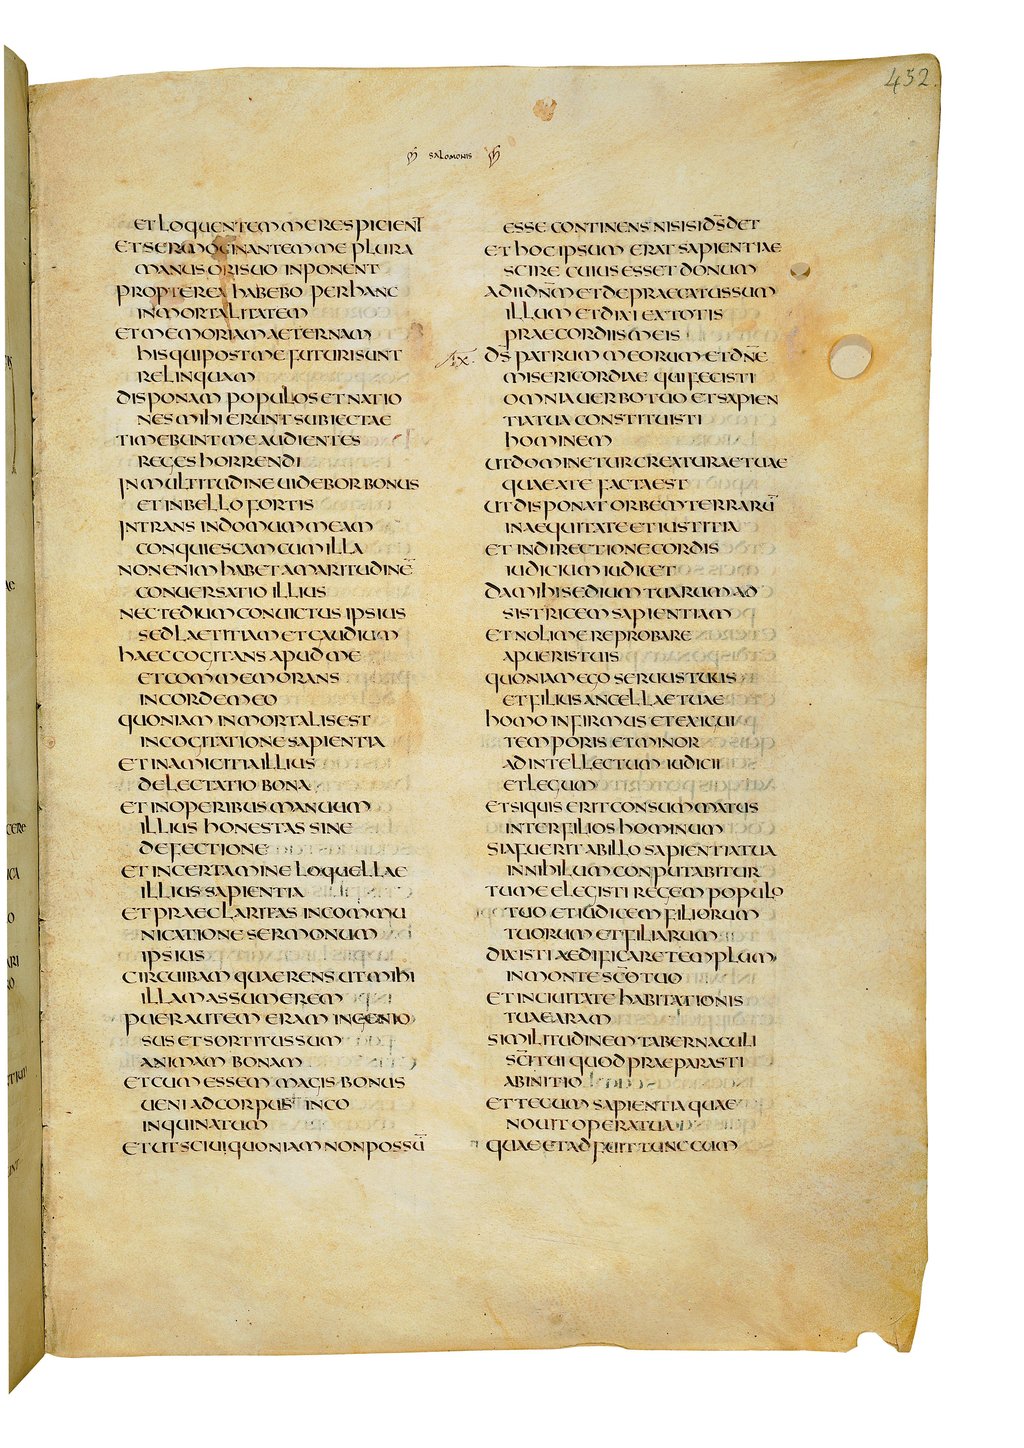 452
SALOMONIS
ET LOQUENTEM ME RESPICIENT
ET SERMOCINANTEM ME PLURA
MANUS ORI SUO INPONENT
PROPTEREA HABEBO PER HANC
INMORTALITATEM
ET MEMORIAM AETERNAM
HIS QUI POST ME FUTURI SUNT
RELINQUAM
DISPONAM POPULOS ET NATIO
NES MIHI ERUNT SUBIECTAE
TIMEBUNT ME AUDIENTES
REGES HORRENDI
IN MULTITUDINE UIDEBOR BONUS
ET IN BELLO FORTIS
INTRANS IN DOMUM MEAM
CONQUIESCAM CUM ILLA
NON ENIM HABET AMARITUDINĒ
CONUERSATIO ILLIUS
NEC TEDIUM CONUICTUS IPSIUS
SED LAETITIAM ET GAUDIUM
HAEC COGITANS APUD ME
ET COMMEMORANS
IN CORDE MEO
QUONIAM INMORTALIS EST
IN COGITATIONE SAPIENTIA
ET IN AMICITIA ILLIUS
DELECTATIO BONA
ET IN OPERIBUS MANUUM
ILLIUS HONESTAS SINE
DEFECTIONE
ET IN CERTAMINE LOQUELLAE
ILLIUS SAPIENTIA
ET PRAECLARITAS IN COMMU
NICATIONE SERMONUM
IPSIUS
CIRCUIBAM QUAERENS UT MIHI
ILLAM ASSUMEREM
PUER AUTEM ERAM INGENIO
SUS ET SORTITUS SUM
ANIMAM BONAM
ET CUM ESSEM MAGIS BONUS
UENI AD CORPUS INCO
INQUINATUM
ET UT SCIUI QUONIAM NON POSSŪ
ESSE CONTINENS NISI SI D̄S DET
ET HOC IPSUM ERAT SAPIENTIAE
SCIRE CUIUS ESSET DONUM
ADII DN̄M ET DEPRAECATUS SUM
ILLUM ET DIXI EX TOTIS
PRAECORDIIS MEIS
D̄S PATRUM MEORUM ET DN̄E
MISERICORDIAE QUI FECISTI
OMNIA UERBO TUO ET SAPIEN
TIA TUA CONSTITUISTI
HOMINEM
UT DOMINETUR CREATURAE TUAE
QUAE A TE FACTA EST
UT DISPONAT ORBEM TERRARŪ
IN AEQUITATE ET IUSTITIA
ET IN DIRECTIONE CORDIS
IUDICIUM IUDICET
DA MIHI SEDIUM TUARUM AD
SISTRICEM SAPIENTIAM
ET NOLI ME REPROBARE
A PUERIS TUIS
QUONIAM EGO SERUUS TUUS
ET FILIUS ANCELLAE TUAE
HOMO INFIRMUS ET EXIGUI
TEMPORIS ET MINOR
AD INTELLECTUM IUDICII
ET LEGUM
ET SI QUIS ERIT CONSUMMATUS
INTER FILIOS HOMINUM
SI AFUERIT AB ILLO SAPIENTIA TUA
IN NIHILUM CONPUTABITUR
TU ME ELEGISTI REGEM POPULO
TUO ET IUDICEM FILIORUM
TUORUM ET FILIARUM
DIXISTI AEDIFICARE TEMPLUM
IN MONTE SC̄O TUO
ET IN CIUITATE HABITATIONIS
TUAE ARAM
SIMILITUDINEM TABERNACULI
SC̄I TUI QUOD PRAEPARASTI
AB INITIO
ET TECUM SAPIENTIA QUAE
NOUIT OPERA TUA
QUAE ET ADFUIT TUNC CUM